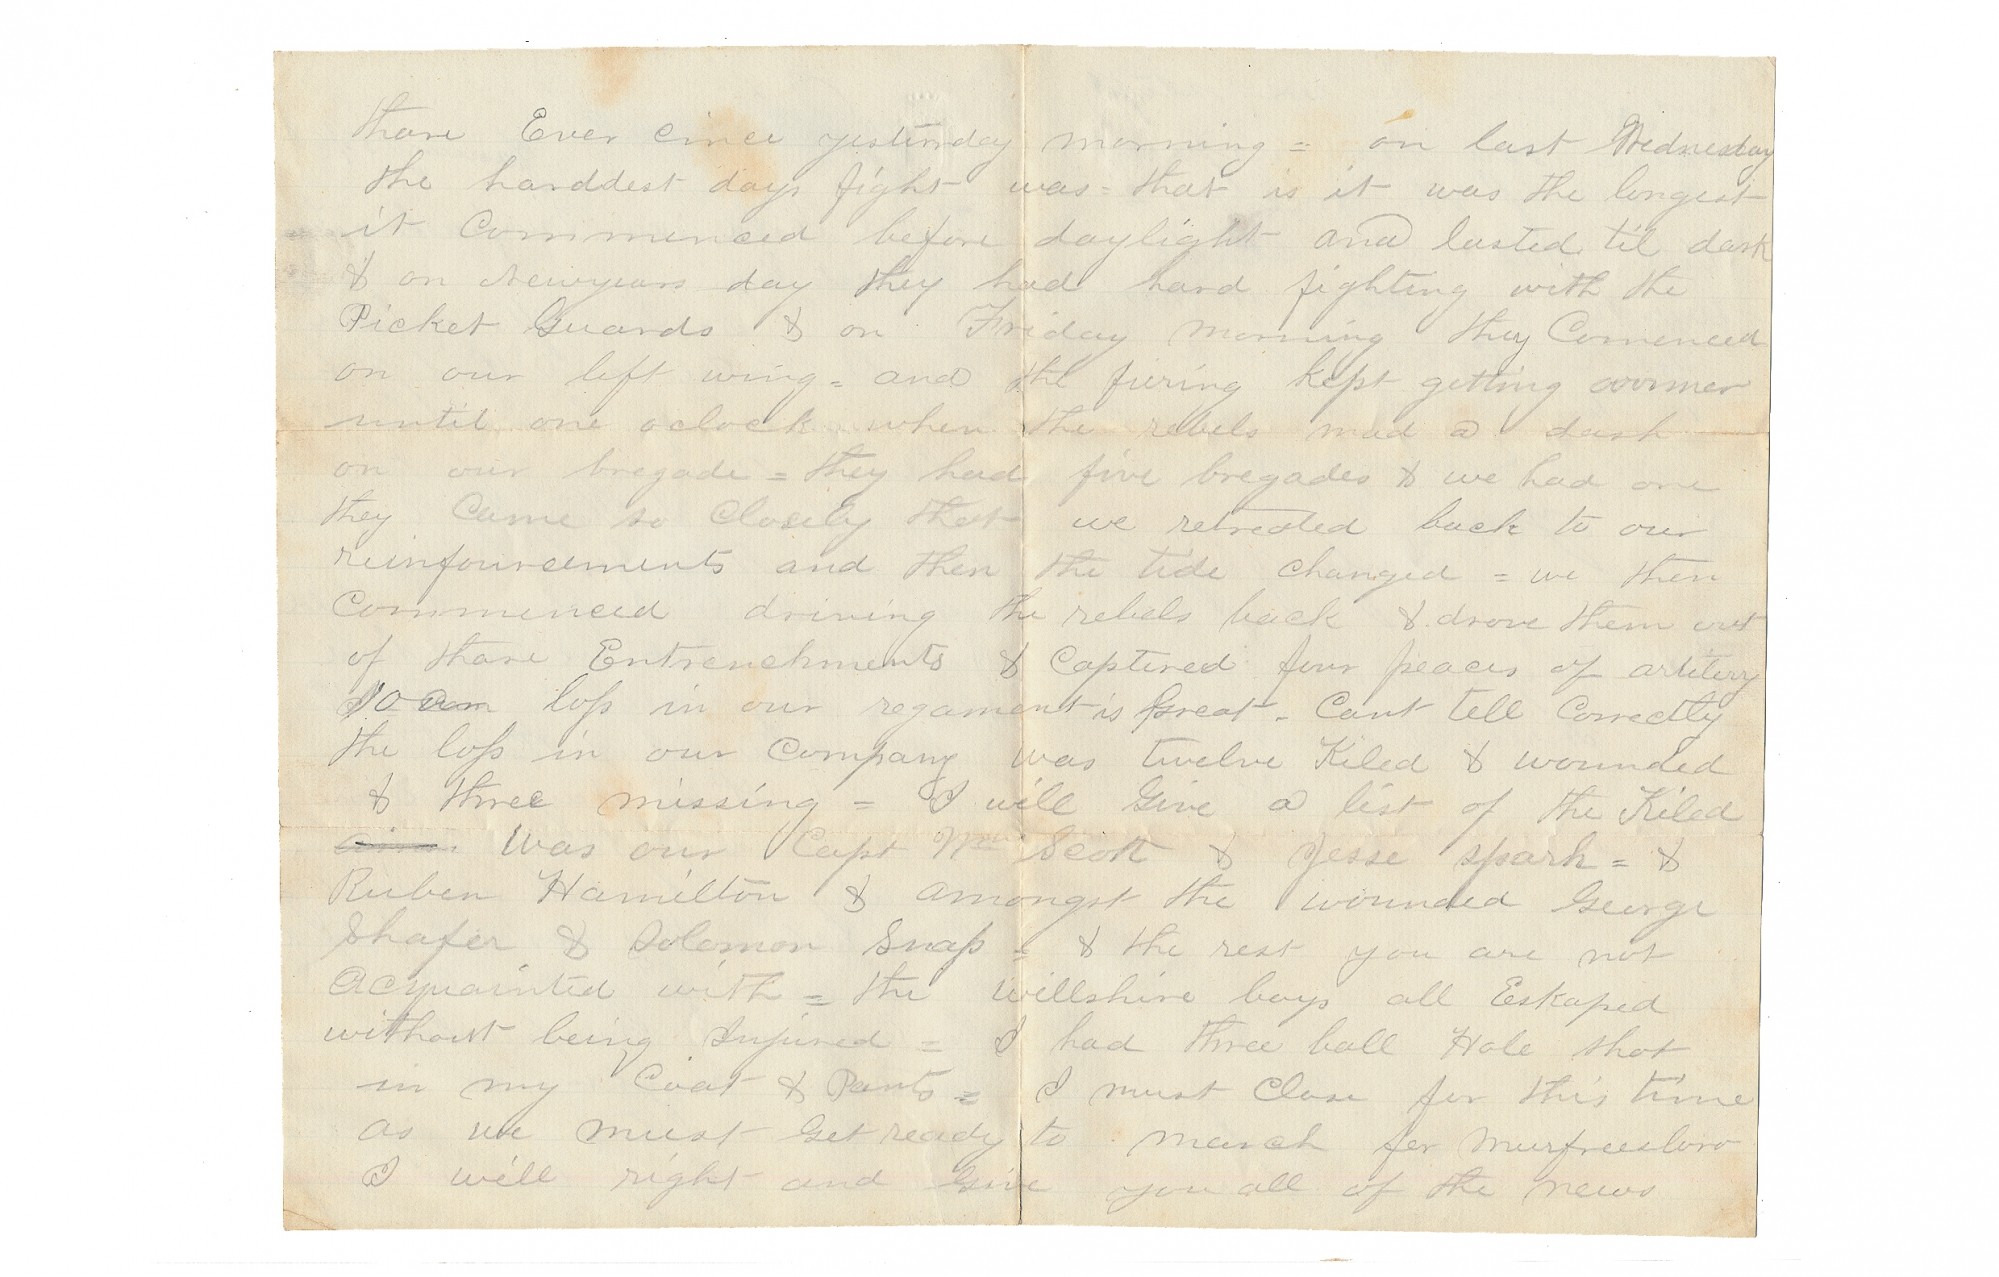 thare Ever cince yesterday morning = on last Wednesday
the harddest days fight was = that is it was the longest
it Commenced before daylight and lasted til dark
& on Newyears day they had hard fighting with the
Picket Guards & on Friday morning they Comenced
on our left wing = and the fiering kept getting wormer
until one oclock when the rebels mad a dash
on our bregade = they had five bregades & we had one
they Came so Closely that we retreated back to our
reinfourcements and then the tide changed = we then
Commenced driving the rebels back & drove them out
of thare Entrenchments & Captured four peaces of artilery
loss in our regament is Great - Cant tell Correctly
the loss in our Company was twelve Kiled & wounded
& three missing = I will Give a list of the Kiled
Was our Capt Wm Scott & Jesse spark = &
Ruben Hamilton & amongst the wounded George
Shafer & Solomon Snap = & the rest you are not
Acquainted with = the willshire boys all Eskaped
without being Injured = I had three ball Hole shot
in my Coat & Pants = I must Close for this time
as we must Get ready to march fer Murfreesboro
I will right and Give you all of the news